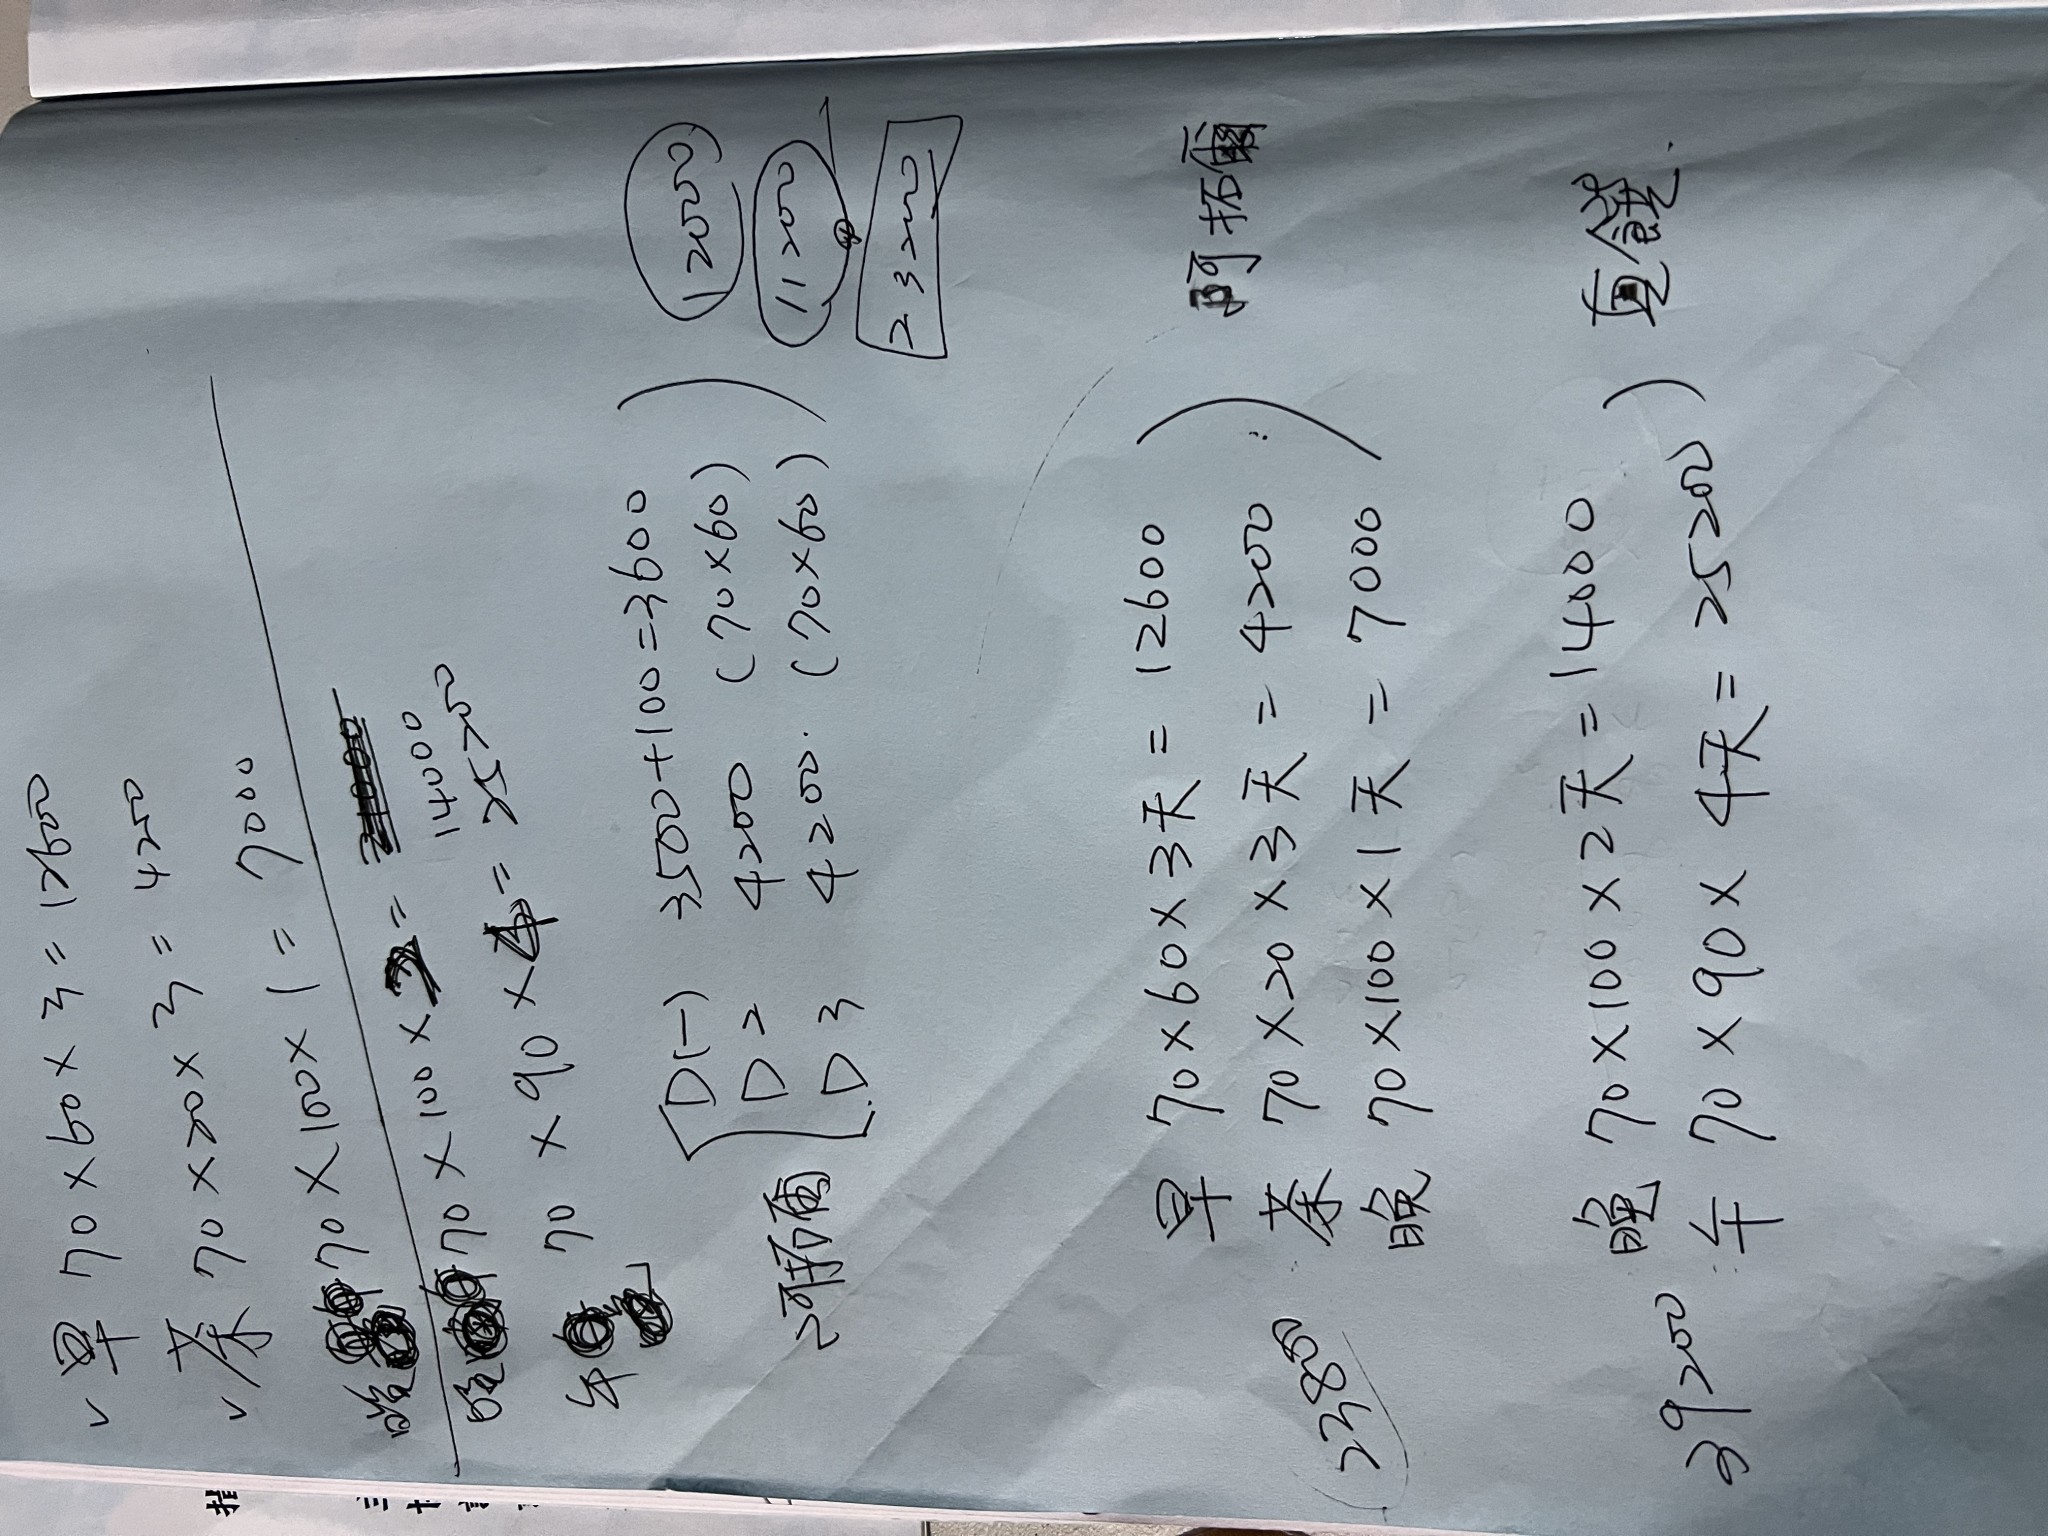 ✓早 70×60×3=12600
✓茶 70×20×3=4200
晚 70×100×1=7000
晚 70×100×2=14000
午 70×90×4=25200
D(一) 3500+100=3600
D2 4200 (70×60)
D3 4200. (70×60)
12000
11200
23200
早 70×60×3天=12600
茶 70×20×3天=4200
晚 70×100×1天=7000
阿拓爾
23800
晚 70×100×2天=14000
午 70×90×4天=25200
39200